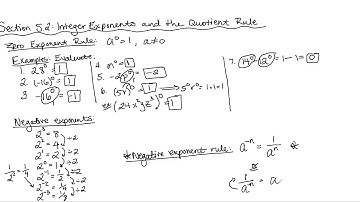 Section 5.2: Integer Exponents and the Quotient Rule
Zero Exponent Rule: a⁰ = 1, a≠0
Examples: Evaluate.
1. 28⁰ = 1
2. (-16)⁰ = 1
3. -6⁰ = -1
4. m⁰ = 1
5. -2⁰ = -2
6. (5r)⁰ = 1 ⇒ 5⁰r⁰ = 1·1 = 1
(24x³y z³)⁰ = 1
7. 14⁰ - 2⁰ = 1 - 1 = 0
Negative exponents:
2³ = 8 ÷2
2² = 4 ÷2
2¹ = 2 ÷2
2⁰ = 1 ÷2
2⁻¹ = 1/2 ÷2
1/2² = 1/4 = 2⁻² = 1/4 ÷2
2⁻³ = 1/8
*Negative exponent rule: a⁻ⁿ = 1/aⁿ *
or
1/a⁻ⁿ = a